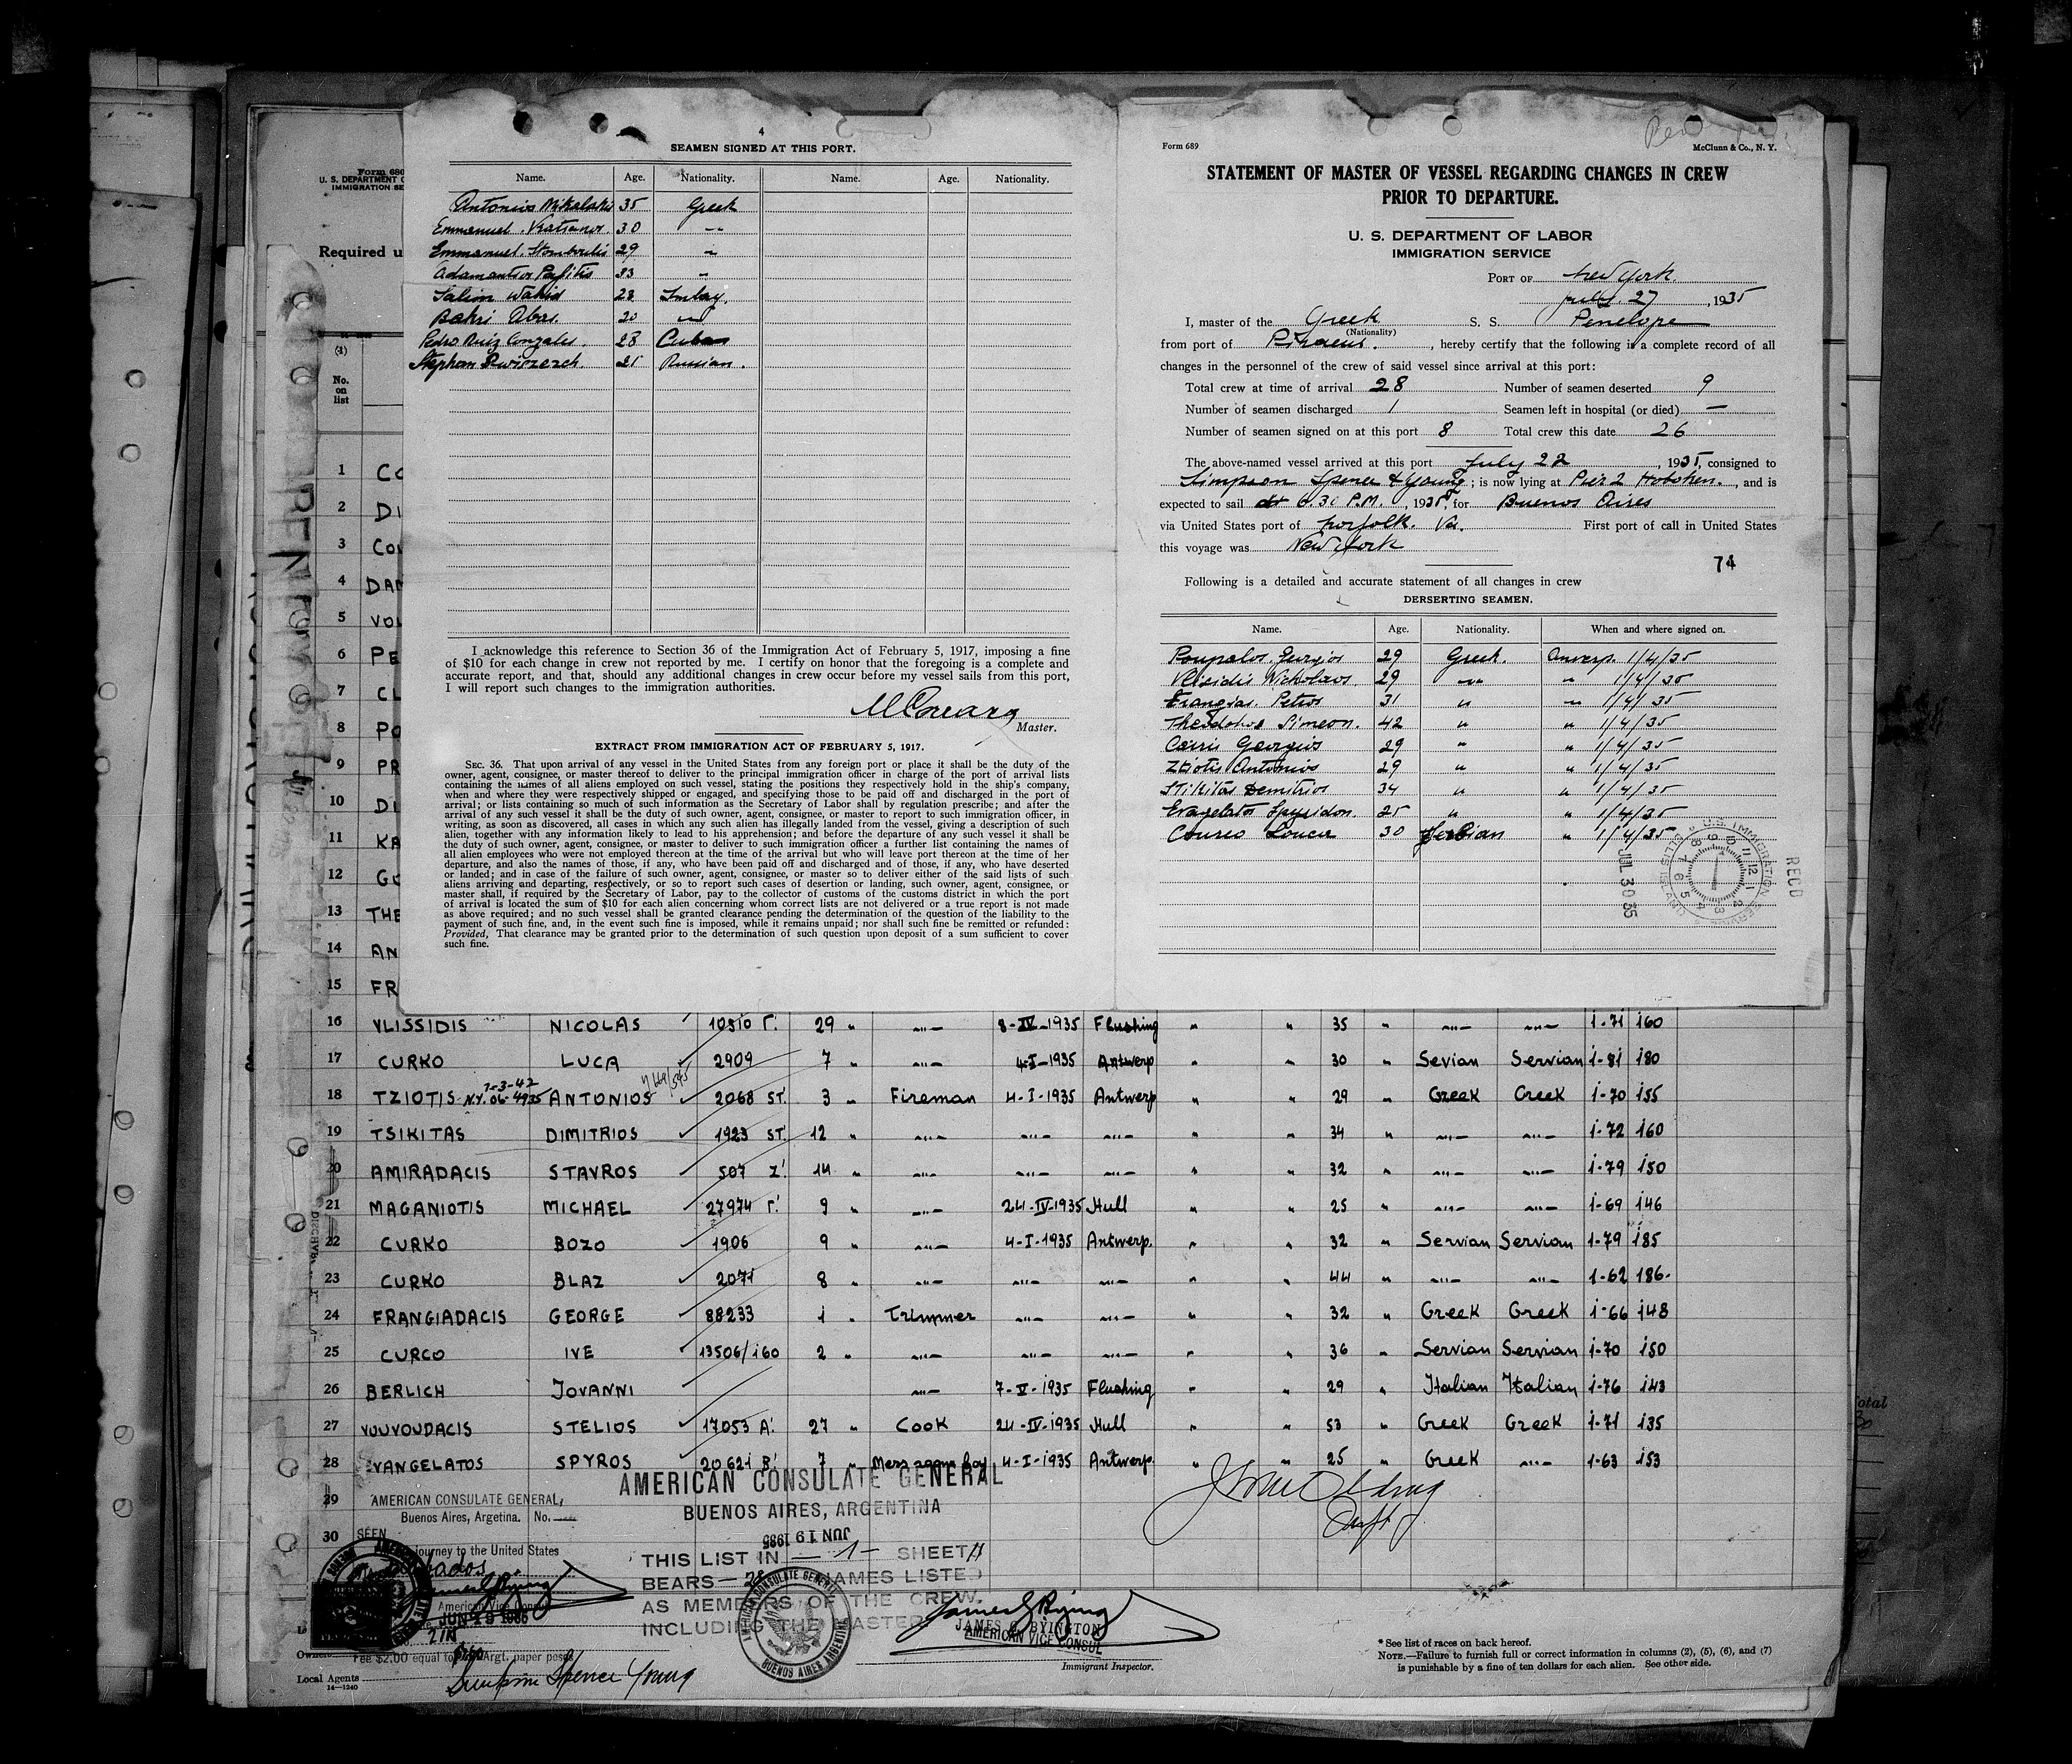 4
SEAMEN SIGNED AT THIS PORT.
Name. Age. Nationality. Name. Age. Nationality.
Antonios Nikolakis 35 Greek
Emmanuel 30 -"-
Emmanuel 29 "
33 "
Salim Wahid 28
Bakri Abas. 20 -"-
Pedro Ruiz Gonzales. 28 Cuban
Stephan 21 Russian.
I acknowledge this reference to Section 36 of the Immigration Act of February 5, 1917, imposing a fine
of $10 for each change in crew not reported by me. I certify on honor that the foregoing is a complete and
accurate report, and that, should any additional changes in crew occur before my vessel sails from this port,
I will report such changes to the immigration authorities.
Master.
EXTRACT FROM IMMIGRATION ACT OF FEBRUARY 5, 1917.
SEC. 36. That upon arrival of any vessel in the United States from any foreign port or place it shall be the duty of the
owner, agent, consignee, or master thereof to deliver to the principal immigration officer in charge of the port of arrival lists
containing the names of all aliens employed on such vessel, stating the positions they respectively hold in the ship's company,
when and where they were respectively shipped or engaged, and specifying those to be paid off and discharged in the port of
arrival; or lists containing so much of such information as the Secretary of Labor shall by regulation prescribe; and after the
arrival of any such vessel it shall be the duty of such owner, agent, consignee, or master to report to such immigration officer, in
writing, as soon as discovered, all cases in which any such alien has illegally landed from the vessel, giving a description of such
alien, together with any information likely to lead to his apprehension; and before the departure of any such vessel it shall be
the duty of such owner, agent, consignee, or master to deliver to such immigration officer a further list containing the names of
all alien employees who were not employed thereon at the time of the arrival but who will leave port thereon at the time of her
departure, and also the names of those, if any, who have been paid off and discharged and of those, if any, who have deserted
or landed; and in case of the failure of such owner, agent, consignee, or master so to deliver either of the said lists of such
aliens arriving and departing, respectively, or so to report such cases of desertion or landing, such owner, agent, consignee, or
master shall, if required by the Secretary of Labor, pay to the collector of customs of the customs district in which the port
of arrival is located the sum of $10 for each alien concerning whom correct lists are not delivered or a true report is not made
as above required; and no such vessel shall be granted clearance pending the determination of the question of the liability to the
payment of such fine, and, in the event such fine is imposed, while it remains unpaid; nor shall such fine be remitted or refunded:
Provided, That clearance may be granted prior to the determination of such question upon deposit of a sum sufficient to cover
such fine.
Form 689 McClunn & Co., N. Y.
STATEMENT OF MASTER OF VESSEL REGARDING CHANGES IN CREW
PRIOR TO DEPARTURE.
U. S. DEPARTMENT OF LABOR
IMMIGRATION SERVICE
PORT OF New York
July 27, 1935
I, master of the Greek S. S. Penelope
(Nationality)
from port of Piraeus., hereby certify that the following is a complete record of all
changes in the personnel of the crew of said vessel since arrival at this port:
Total crew at time of arrival 28 Number of seamen deserted 9
Number of seamen discharged 1 Seamen left in hospital (or died) —
Number of seamen signed on at this port 8 Total crew this date 26
The above-named vessel arrived at this port July 22, 1935, consigned to
Simpson Spence & Young; is now lying at Pier 2 Hoboken., and is
expected to sail at 6.30 P.M., 1935, for Buenos Aires
via United States port of Norfolk. Va. First port of call in United States
this voyage was New York
74
Following is a detailed and accurate statement of all changes in crew
DERSERTING SEAMEN.
Name. Age. Nationality. When and where signed on.
Roupalos Georgios 29 Greek. Anversp. 1/4/35
Vlisidis Nicholaos. 29 -"- " 1/4/35
Frangias. Petros 31 " " 1/4/35
Simeon. 42 " " 1/4/35
Cairis Georgios 29 " " 1/4/35
Tziotis Antonios 29 " " 1/4/35
Demitrios 34 " " 1/4/35
Evagelatos Spyridon. 25 " " 1/4/35
30 Serbian " 1/4/35
U.S. IMMIGRATION SERVICE ELLIS ISLAND
JUL 30 35
RECD
Form 680
U. S. DEPARTMENT O
IMMIGRATION SE
Required u
(1)
No.
on
list
1 CO
2 DI
3 COU
4 DAM
5 VOL
6 PE
7 CL
8 PO
9 PR
10 DI
11 KA
12 GE
13 THE
14 AN
15 FR
16 VLISSIDIS NICOLAS 10310 Γ. 29 " -"- 8-IV-1935 Flushing " " 35 " -"- -"- 1-71 160
17 CURKO LUCA 2909 7 " -"- 4-I-1935 Antwerp " " 30 " Sevian Servian 1-81 180
7-3-42
18 TZIOTIS ANTONIOS 2068 ST. 3 " Fireman 4-I-1935 Antwerp " " 29 " Greek Greek 1-70 155
19 TSIKITAS DIMITRIOS 1923 ST. 12 " -"- -"- -"- " " 34 " -"- -"- 1-72 160
20 AMIRADACIS STAVROS 507 Z' 14 " -"- -"- -"- " " 32 " -"- -"- 1-79 150
21 MAGANIOTIS MICHAEL 27974 Γ' 9 " -"- 24-IV-1935 Hull " " 25 " -"- -"- 1-69 146
22 CURKO BOZO 1906 9 " -"- 4-I-1935 Antwerp. " " 32 " Servian Servian 1-79 185
23 CURKO BLAZ 2071 8 " -"- -"- -"- " " 44 " -"- -"- 1-62 186.
24 FRANGIADACIS GEORGE 88233 1 " Trimmer -"- -"- " " 32 " Greek Greek 1-66 148
25 CURCO IVE 13506/160 2 " -"- -"- -"- " " 36 " Servian Servian 1-70 150
26 BERLICH JOVANNI -"- 7-V-1935 Flushing " " 29 " Italian Italian 1-76 143
27 VOUVOUDACIS STELIOS 17053 A' 27 " Cook 24-IV-1935 Hull " " 53 " Greek Greek 1-71 135
28 VANGELATOS SPYROS 20621 B' 7 " Messroom boy 4-I-1935 Antwerp. " " 25 " Greek -"- 1-63 153
29
30
AMERICAN CONSULATE GENERAL,
Buenos Aires, Argetina. No.
SEEN
journey to the United States
American Vice Consul
JUN 19 1935
Fee $2.00 equal to Argt. paper pesos
Local Agents Simpson Spence Young
14—1240
AMERICAN CONSULATE GENERAL
BUENOS AIRES, ARGENTINA
JUN 19 1935
THIS LIST IN —1— SHEET
BEARS—28 NAMES LISTED
AS MEMBERS OF THE CREW,
INCLUDING THE MASTER
AMERICAN CONSULATE GENERAL
BUENOS AIRES ARGENTINA
JAMES G. BYINGTON
AMERICAN VICE CONSUL
Immigrant Inspector.
* See list of races on back hereof.
NOTE.—Failure to furnish full or correct information in columns (2), (5), (6), and (7)
is punishable by a fine of ten dollars for each alien. See other side.